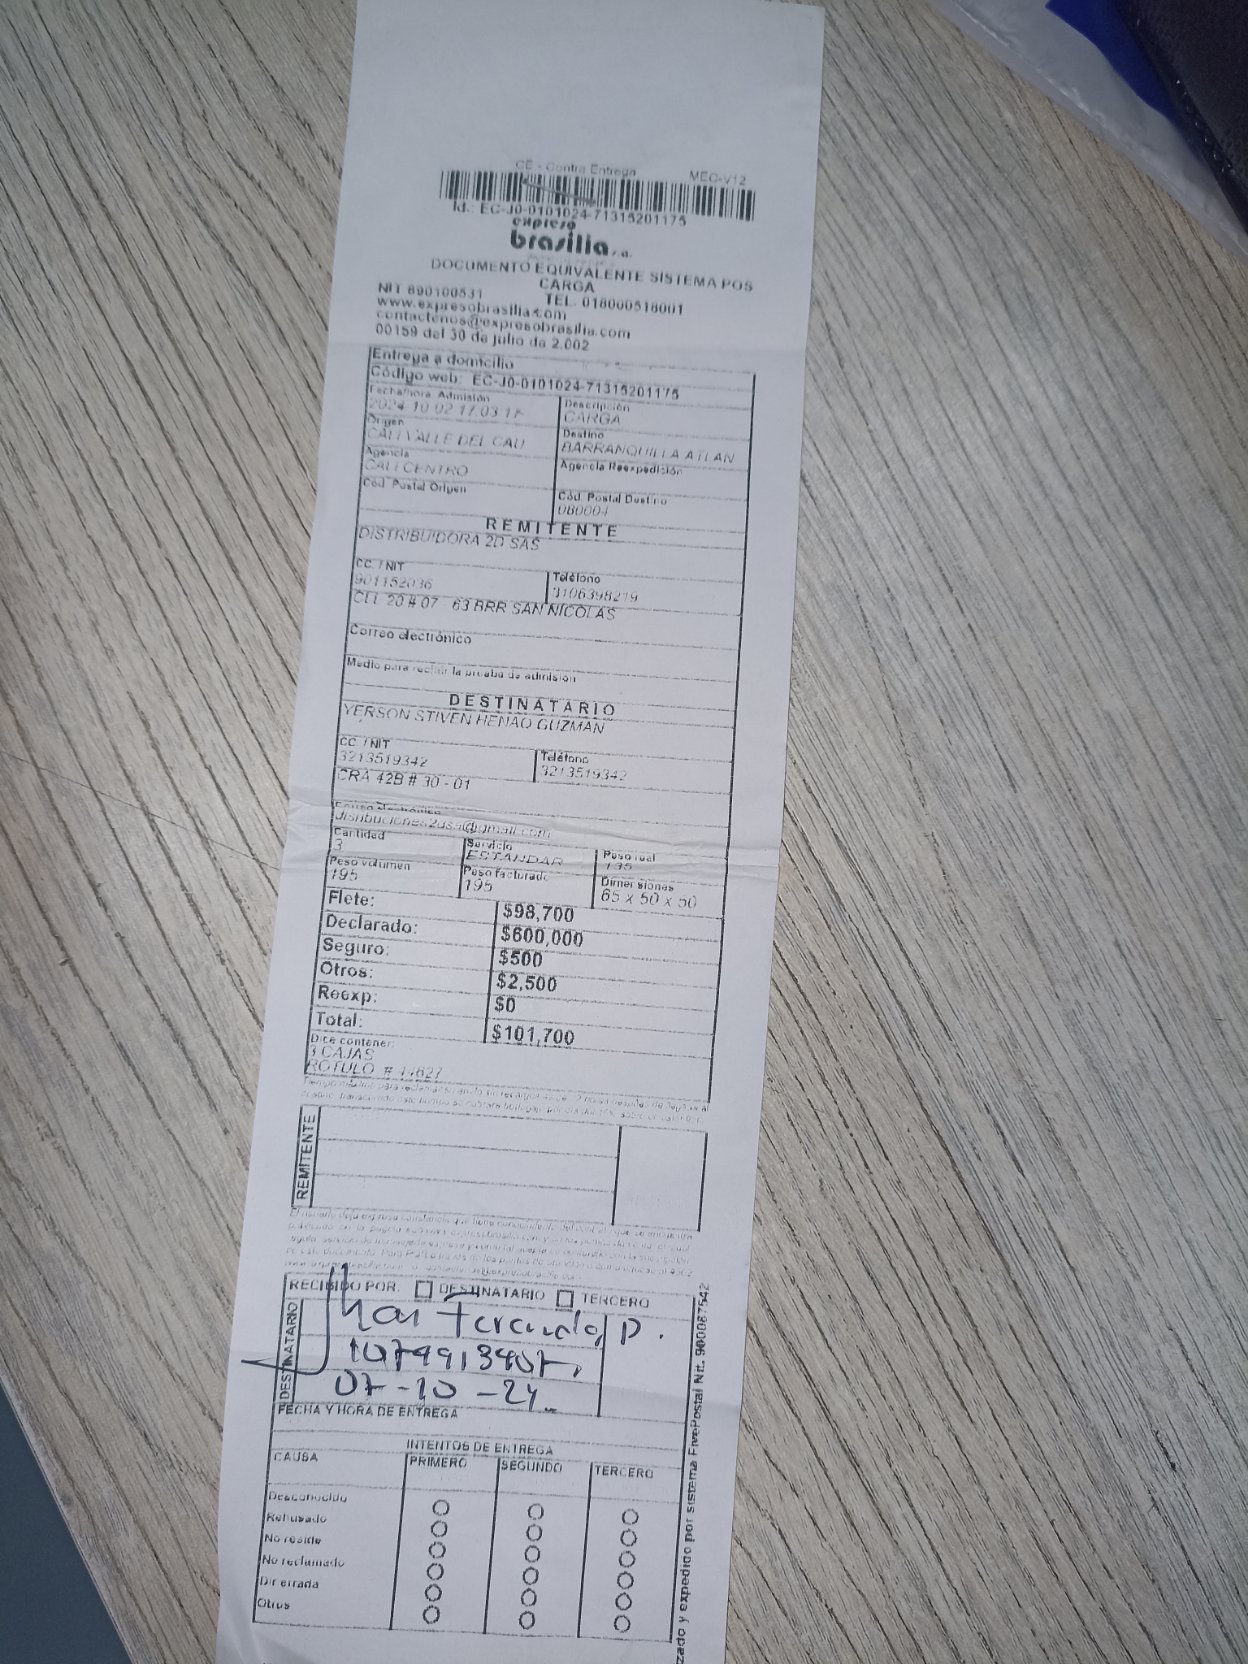 CE - Contra Entrega MEC-V12
Id.: EC-J0-0101024-71315201175
expreso
brasilia s.a.
DOCUMENTO EQUIVALENTE SISTEMA POS
CARGA
NIT 890100531 TEL. 018000518001
www.expresobrasilia.com
contactenos@expresobrasilia.com
00159 del 30 de julio de 2.002
Entrega a domicilio
Código web: EC-J0-0101024-71315201175
Fecha/hora Admisión Descripción
2024-10-02 17:03:17 CARGA
Origen Destino
CALI VALLE DEL CAU BARRANQUILLA ATLAN
Agencia Agencia Reexpedición
CALI CENTRO
Cód. Postal Origen Cód. Postal Destino
080004
REMITENTE
DISTRIBUIDORA 2D SAS
CC. / NIT Teléfono
901152036 3106398219
CLL 20 # 07 - 63 BRR SAN NICOLAS
Correo electrónico
Medio para recibir la prueba de admisión
DESTINATARIO
YERSON STIVEN HENAO GUZMAN
CC. / NIT Teléfono
3213519342 3213519342
CRA 42B # 30 - 01
Correo electrónico
@gmail.com
Cantidad Servicio Peso real
3 ESTANDAR 135
Peso volumen Peso facturado Dimensiones
195 195 65 x 50 x 50
Flete: $98,700
Declarado: $600,000
Seguro: $500
Otros: $2,500
Reexp: $0
Total: $101,700
Dice contener:
3 CAJAS
ROTULO # 14627
REMITENTE
RECIBIDO POR: DESTINATARIO TERCERO
DESTINATARIO
Jhon Fernando P.
1079913407
07-10-24
FECHA Y HORA DE ENTREGA
INTENTOS DE ENTREGA
CAUSA PRIMERO SEGUNDO TERCERO
Desconocido
Rehusado
No reside
No reclamado
Dir errada
Otros
zado y expedido por sistema FivePostal Nit. 900087542